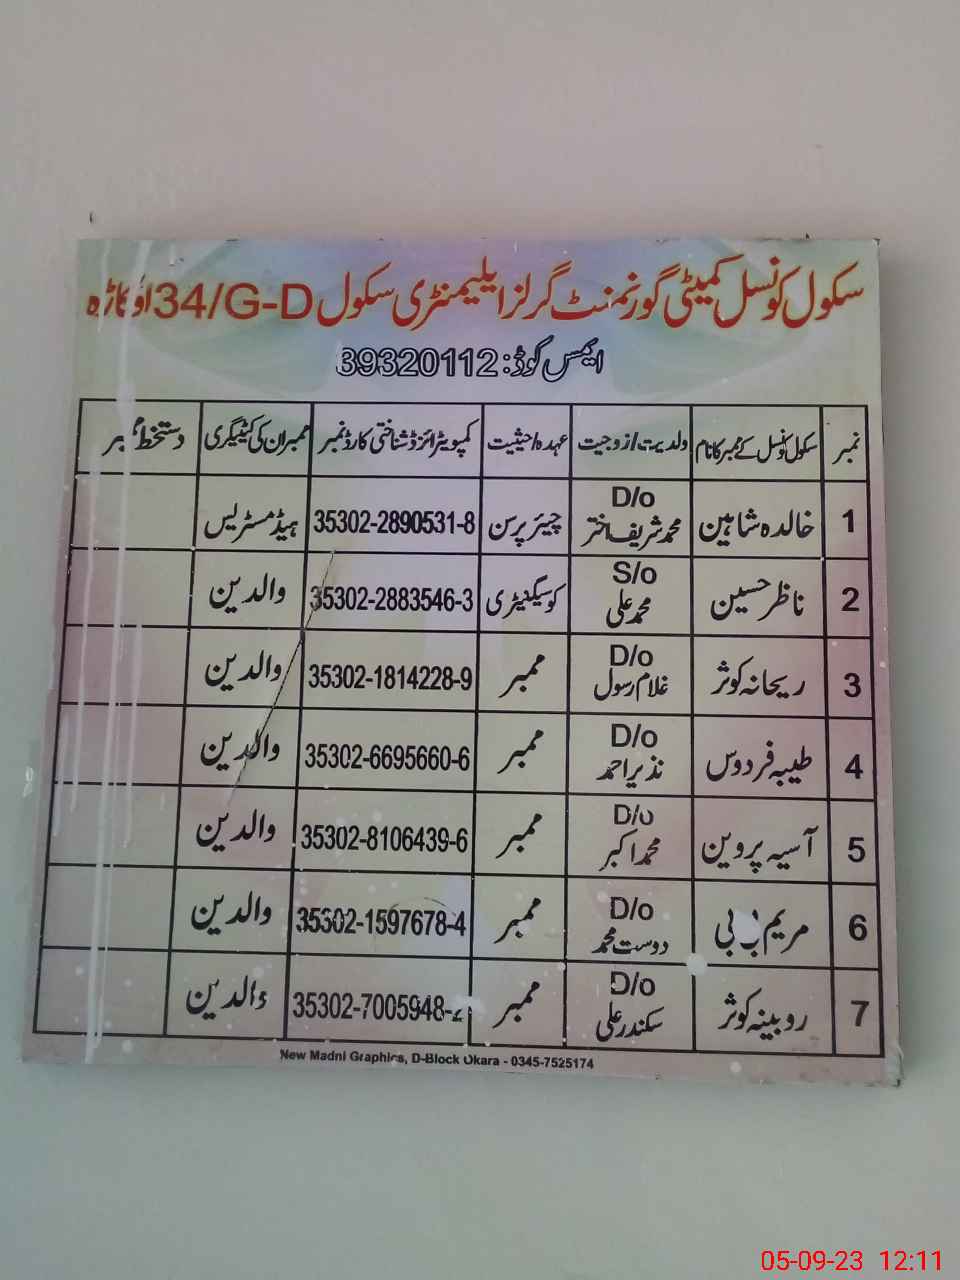 سکول کونسل کمیٹی گورنمنٹ گرلز ایلیمنٹری سکول 34/G-D اوکاڑہ
ایمس کوڈ: 39320112
نمبر سکول کونسل کے ممبر کا نام ولدیت/زوجیت عہدہ/حیثیت کمپیوٹرائزڈ شناختی کارڈ نمبر ممبران کی کیٹیگری دستخط ممبر
1 خالدہ شاہین D/o محمد شریف اختر چیئر پرسن 35302-2890531-8 ہیڈ مسٹریس
2 ناظر حسین S/o محمد علی کوسیکٹیری 35302-2883546-3 والدین
3 ریحانہ کوثر D/o غلام رسول ممبر 35302-1814228-9 والدین
4 طیبہ فردوس D/o نذیر احمد ممبر 35302-6695660-6 والدین
5 آسیہ پروین D/o محمد اکبر ممبر 35302-8106439-6 والدین
6 مریم بی بی D/o دوست محمد ممبر 35302-1597678-4 والدین
7 روبینہ کوثر D/o سکندر علی ممبر 35302-7005948- والدین
New Madni Graphics, D-Block Okara - 0345-7525174
05-09-23 12:11